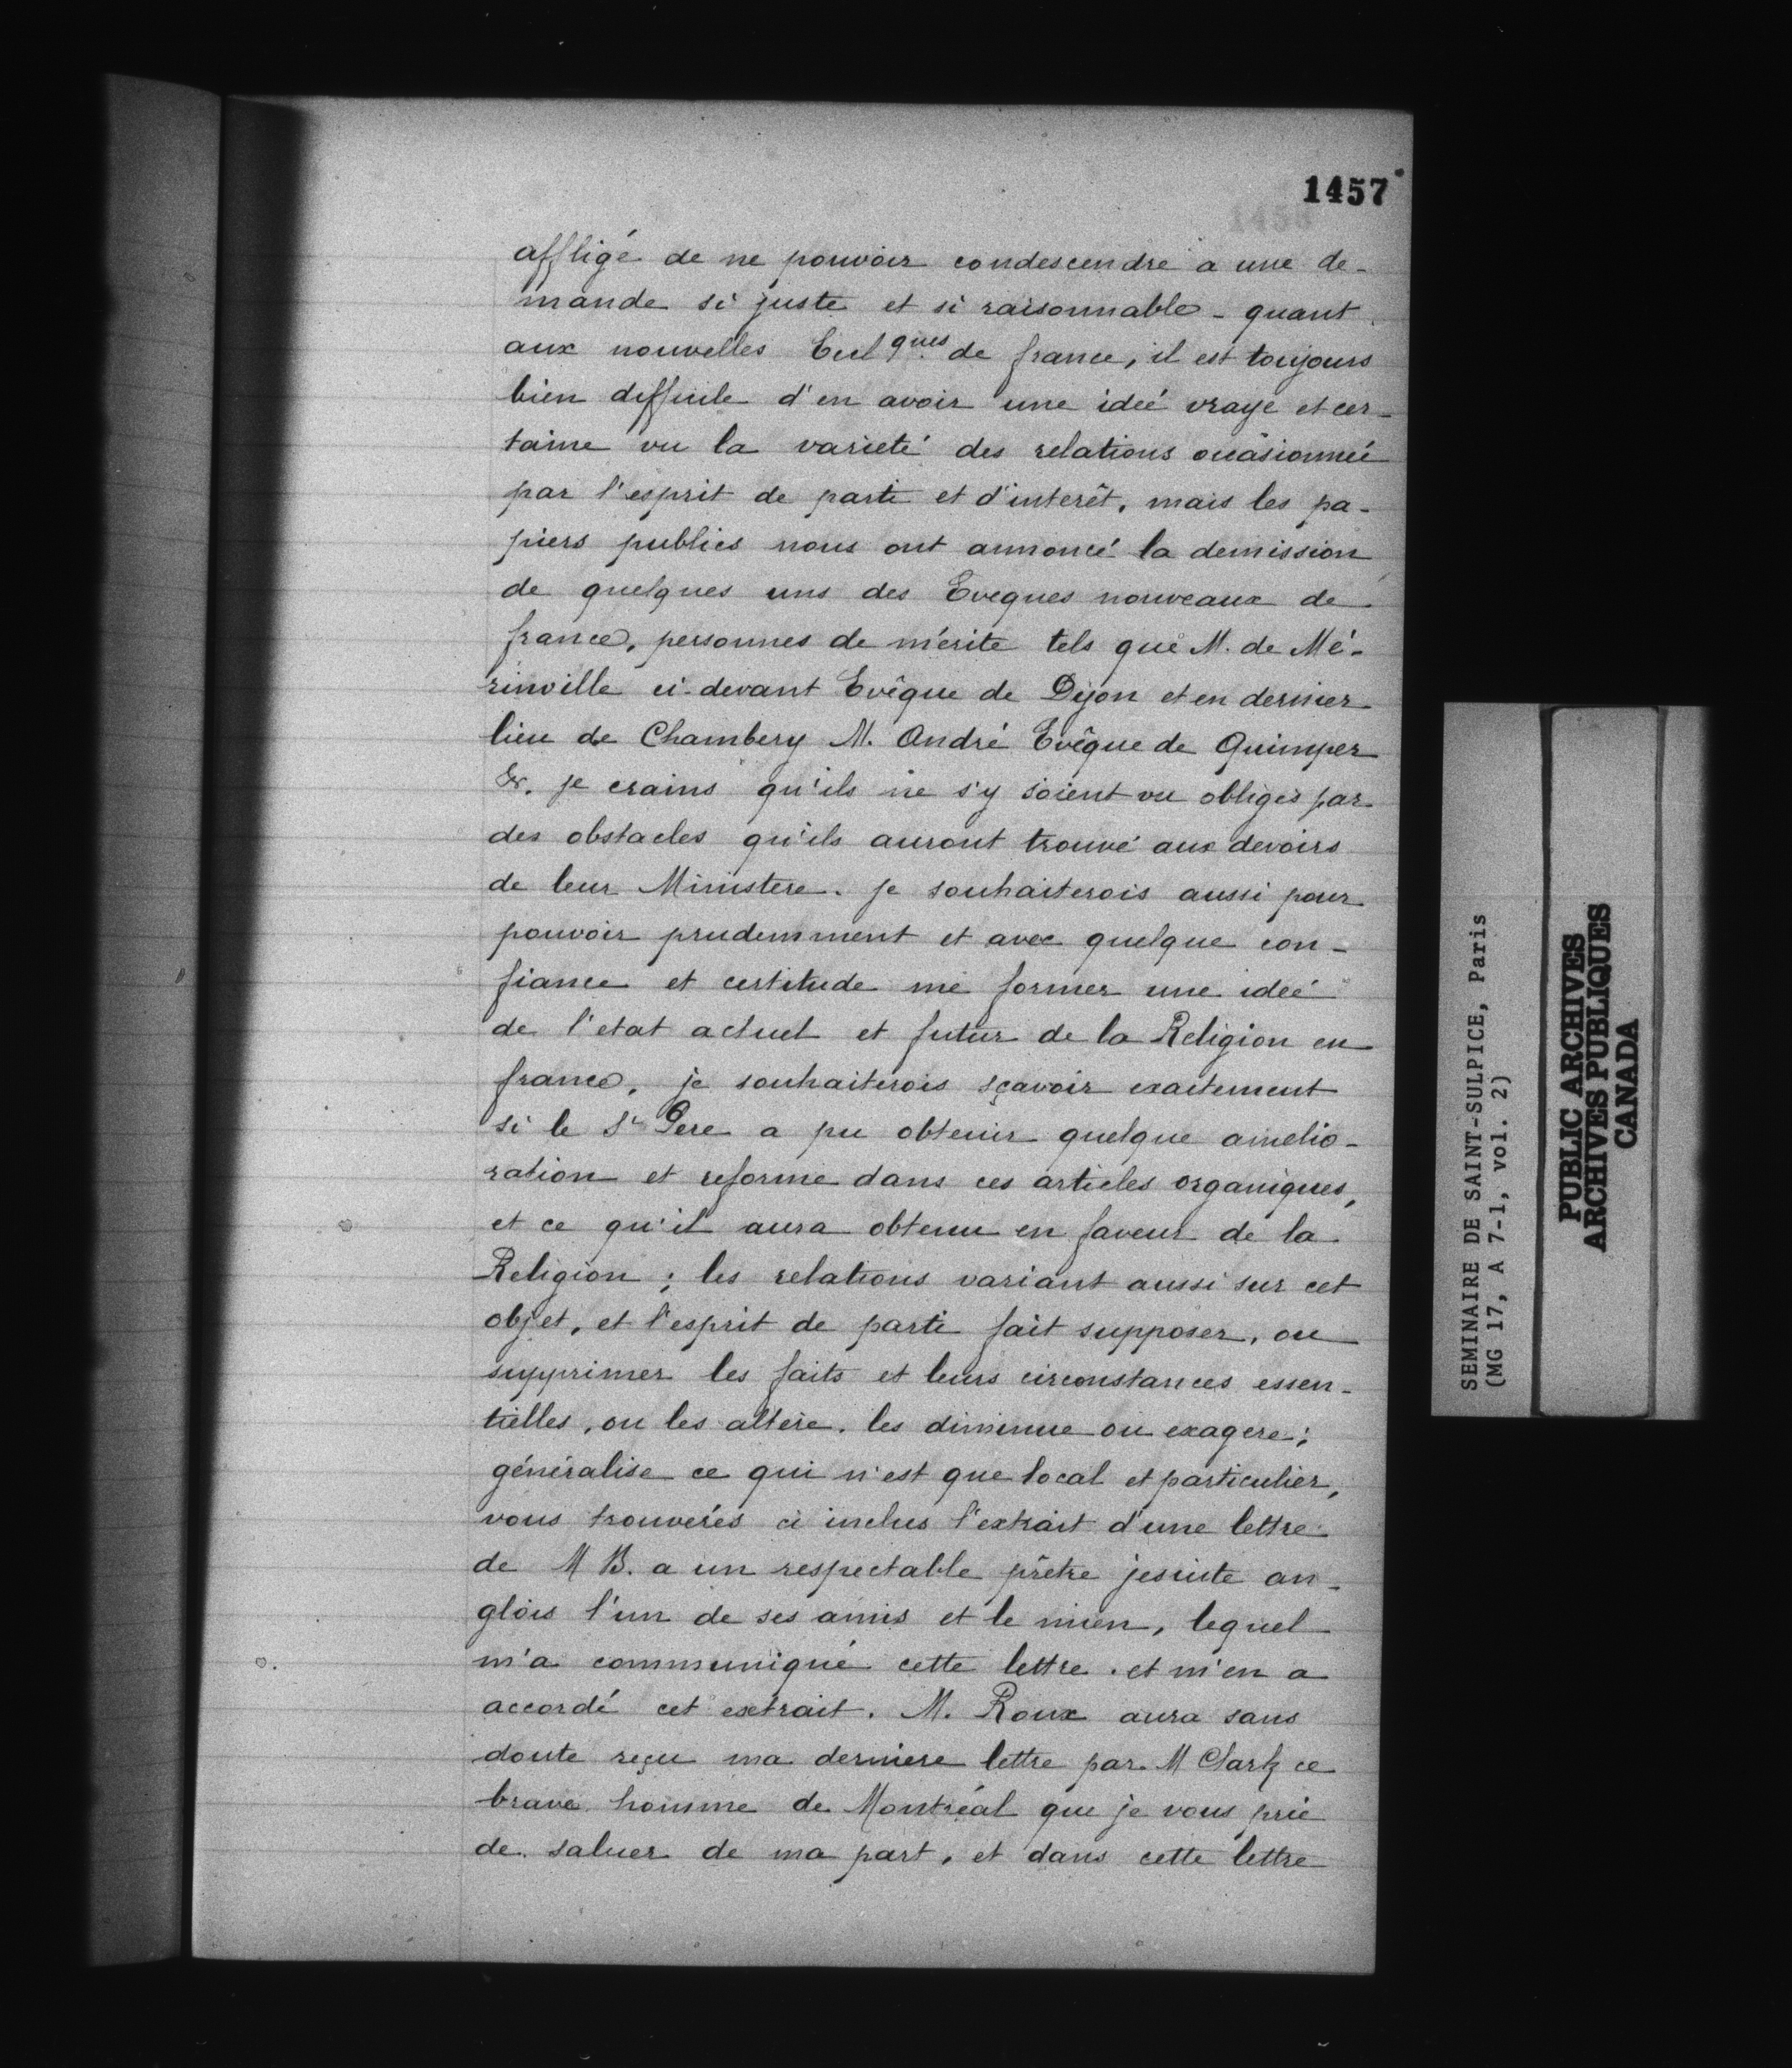 1457
affligé de ne pouvoir condescendre a une de-
mande si juste et si raisonnable - quant
aux nouvelles Eccl^ques de france, il est toujours
bien difficile d'en avoir une ideé vraye et cer-
taine vu la varieté des relations occasionneé
par l'esprit de parti et d'interêt, mais les pa-
piers publics nous ont annoncé la demission
de quelques uns des Eveques nouveaux de
france, personnes de mérite tels que M. de Mé-
rinville ci-devant Evêque de Dijon et en dernier
lieu de Chambery M. André Evêque de Quimper
&. je crains qu'ils ne s'y soient vu obligés par
des obstacles qu'ils auront trouvé aux devoirs
de leur Ministere. je souhaiterois aussi pour
pouvoir prudemment et avec quelque con-
fiance et certitude me former une ideé
de l'etat actuel et futur de la Religion en
france, je souhaiterois sçavoir exactement
si le S^t Pere a pu obtenir quelque amelio-
ration et reforme dans ces articles organiques,
et ce qu'il aura obtenu en faveur de la
Religion ; les relations variant aussi sur cet
objet, et l'esprit de parti fait supposer, ou
supprimer les faits et leurs circonstances essen-
tielles, ou les altere, les diminue ou exagere;
généralise ce qui n'est que local et particulier,
vous trouverés ci inclus l'extrait d'une lettre
de M B. a un respectable prêtre jesuite an-
glois l'un de ses amis et le mien, lequel
m'a communiqué cette lettre. et m'en a
accordé cet extrait. M. Roux aura sans
doute reçu ma derniere lettre par M Clark ce
brave homme de Montréal que je vous prie
de saluer de ma part, et dans cette lettre
SEMINAIRE DE SAINT-SULPICE, Paris
(MG 17, A 7-1, vol. 2)
PUBLIC ARCHIVES
ARCHIVES PUBLIQUES
CANADA